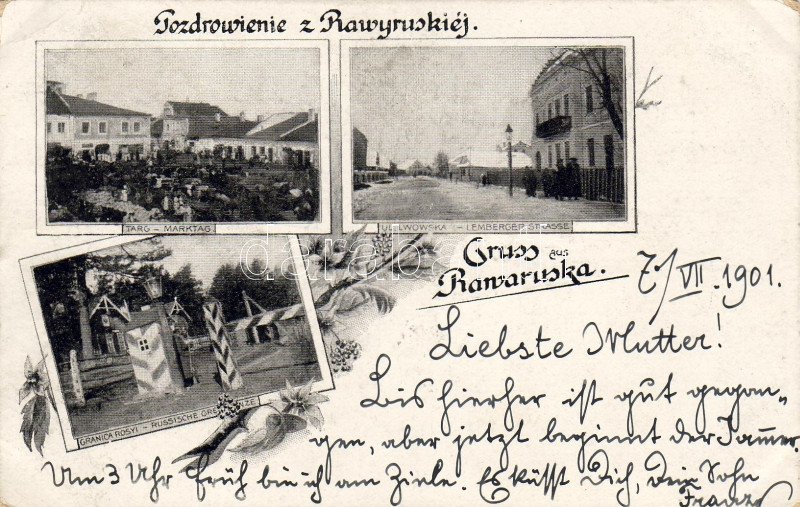 Pozdrowienie z Rawyruskiéj.
TARG – MARKTAG
UL. LWOWSKA – LEMBERGER STRASSE
Gruss aus
Rawaruska.
7/VII. 1901.
Liebste Mutter!
Bis hierher ist gut gegan-
gen, aber jetzt beginnt der Jammer.
Um 3 Uhr früh bin ich am Ziele. Es küsst Dich, Dein Sohn
Franz
GRANICA ROSYI – RUSSISCHE GRENZE